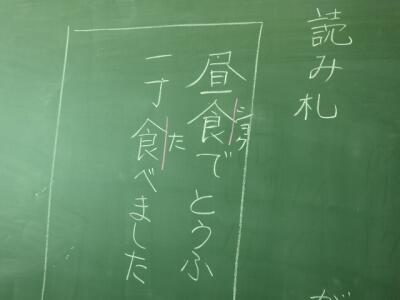 読み札
昼食でとうふ
ショク
一丁食べました
た